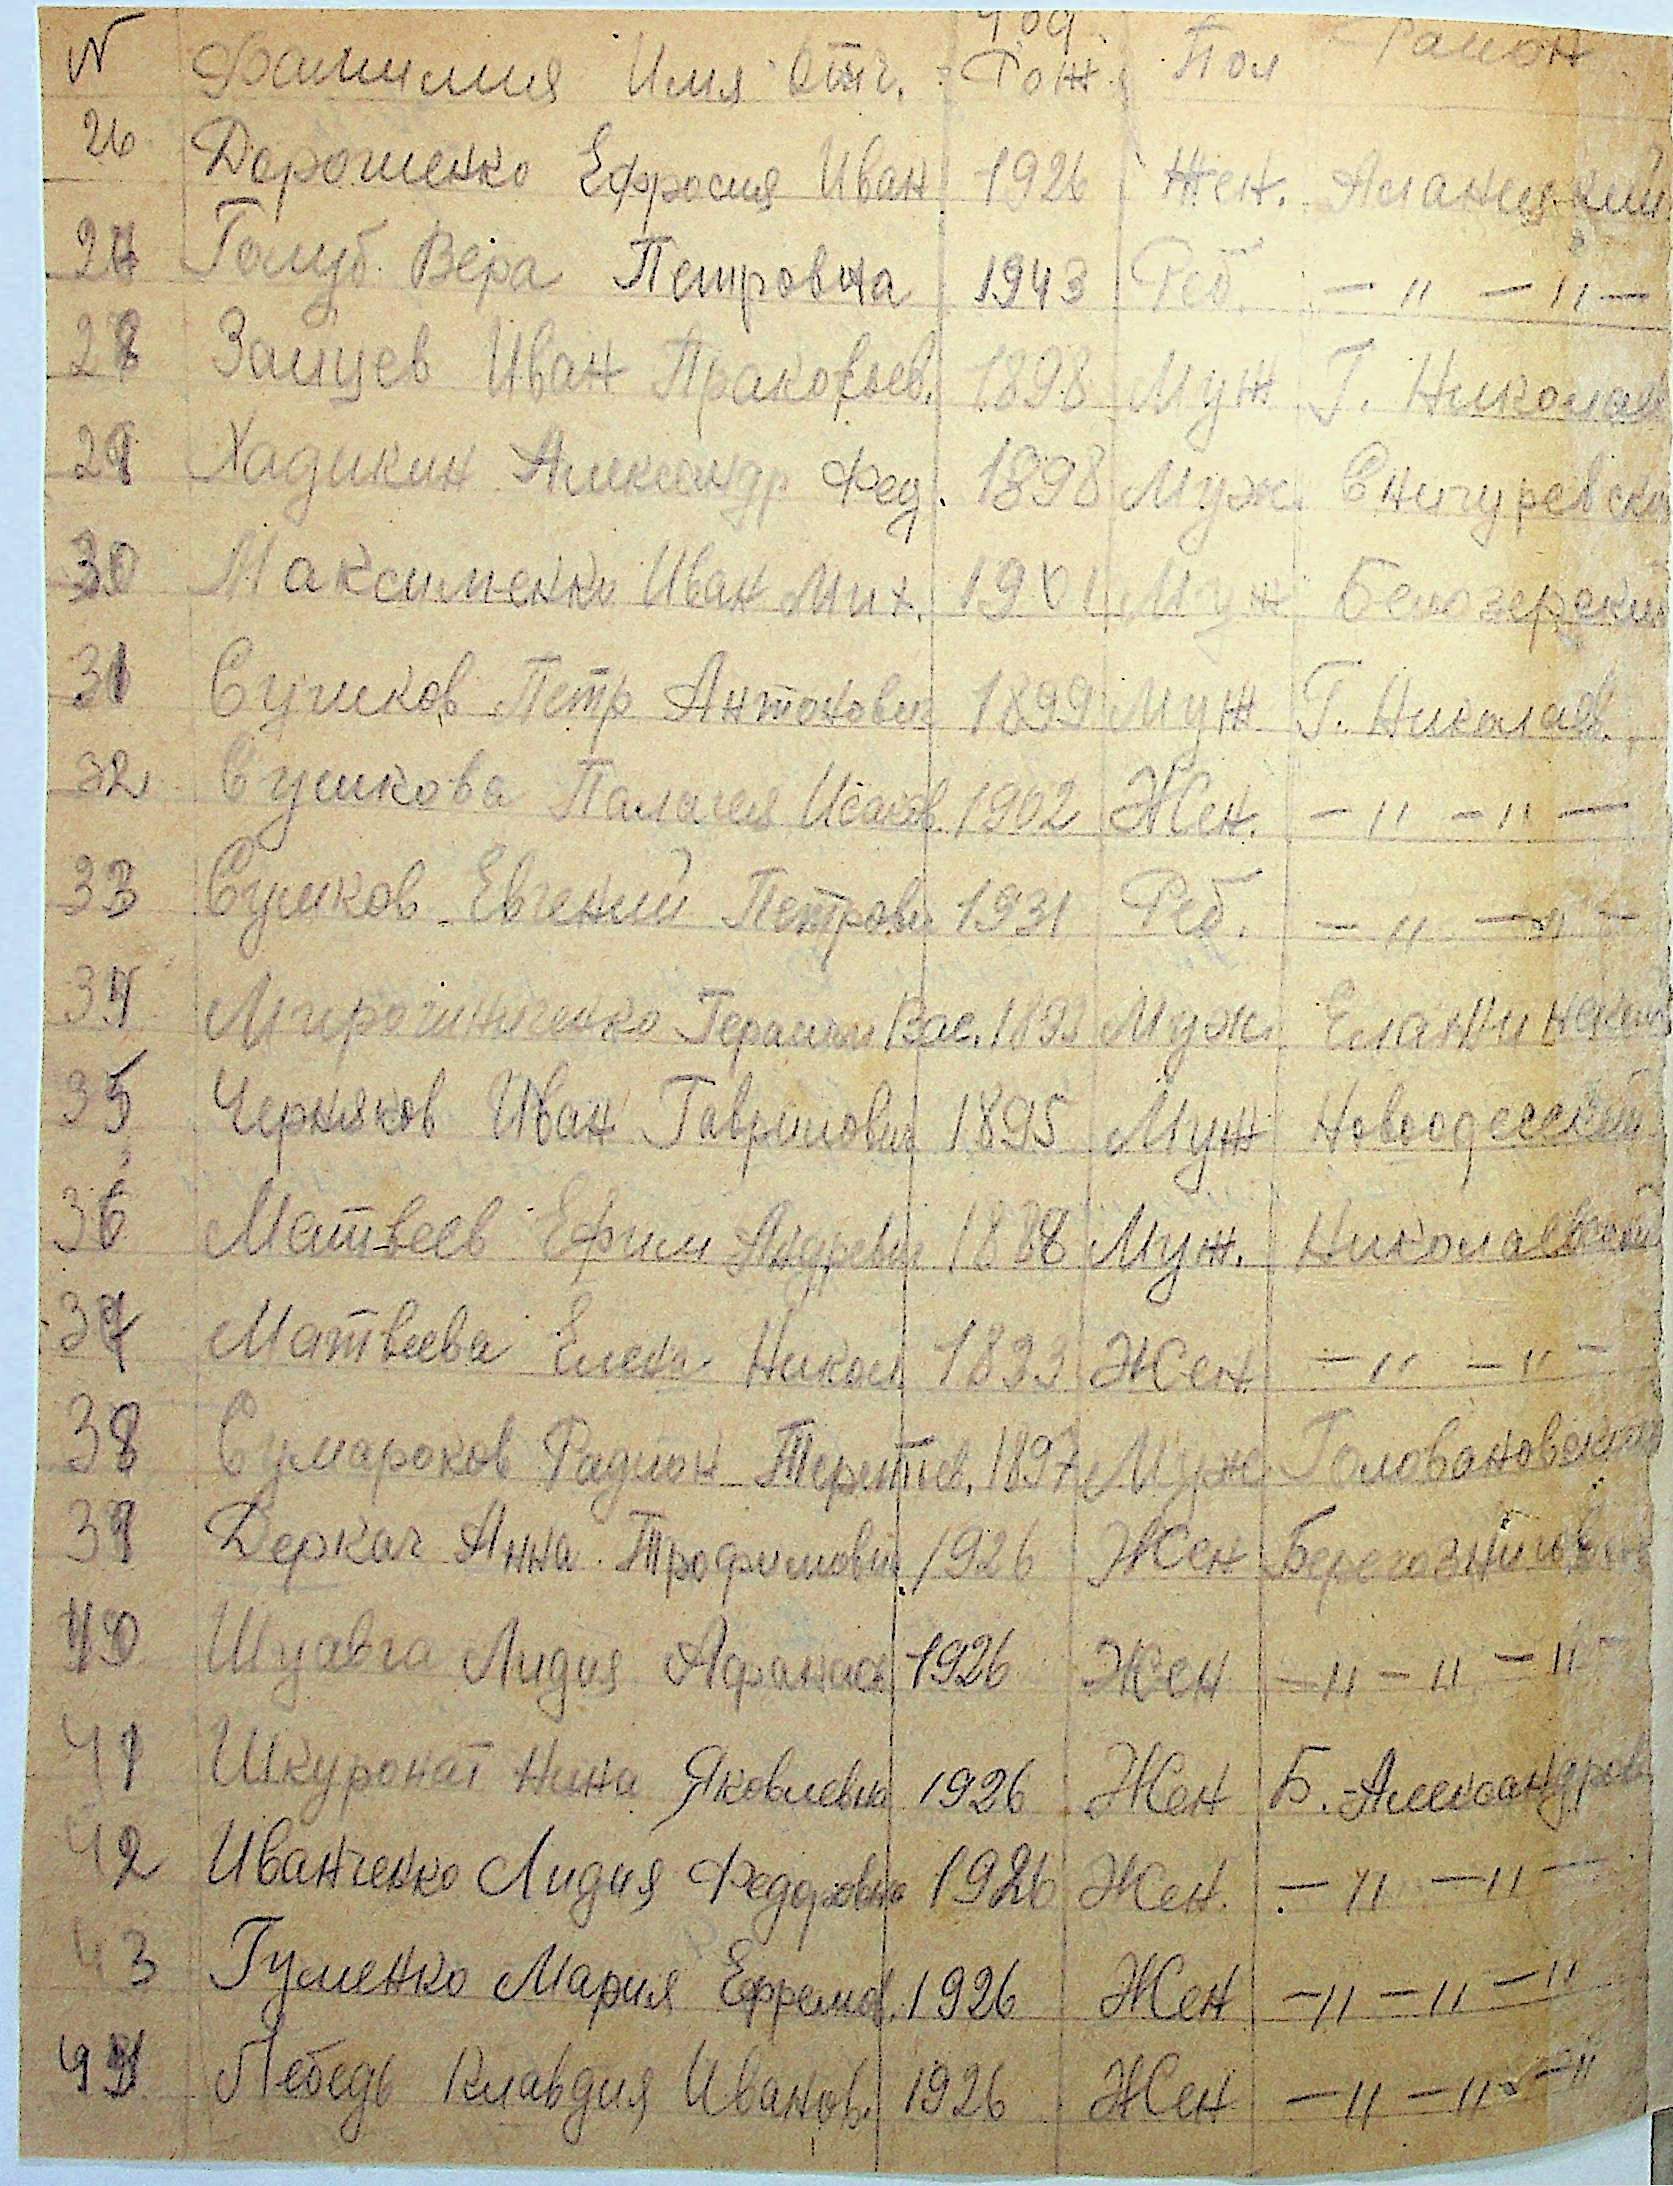 год
N Фамилия Имя Отч. Рож. Пол Район
26 Дорошенко Ефросия Иван 1926 Жен.
27 Голуб. Вера Петровна 1943 Реб. — " — " —
28 Зайцев Иван Пракофьев. 1898 Муж Г. Николаев
29 Хадикин Александр Фед. 1898 Муж. Снигуревско
30 Максименко Иван Мих. 1901 Муж Белозерский
31 Сушков Петр Антонович 1899 Муж Г. Николаев.
32 Сушкова Палагея Исаков. 1902 Жен. — " — " —
33 Сушков Евгений Петрови 1931 Реб. — " — " —
34 Вас. 1893 Муж.
35 Черняков Иван Гаврилович 1895 Муж Новоодесский
36 Матвеев Ефим Андреви Муж. Николаевский
37 Матвеева Елена Никол 1893 Жен — " — " —
38 Сумароков Радион Терентев. 1897 Муж Головановский
39 Деркач Анна Трофимовн 1926 Жен
40 Лидия Афанас 1926 Жен — " — " — "
41 Шкуропат Нина Яковлевна 1926 Жен Б. Александров
42 Иванченко Лидия Федоровна 1926 Жен. — " — " —
43 Гуменко Мария Ефремов. 1926 Жен — " — " — "
44 Лебедь Клавдия Иванов. 1926 Жен — " — " — "